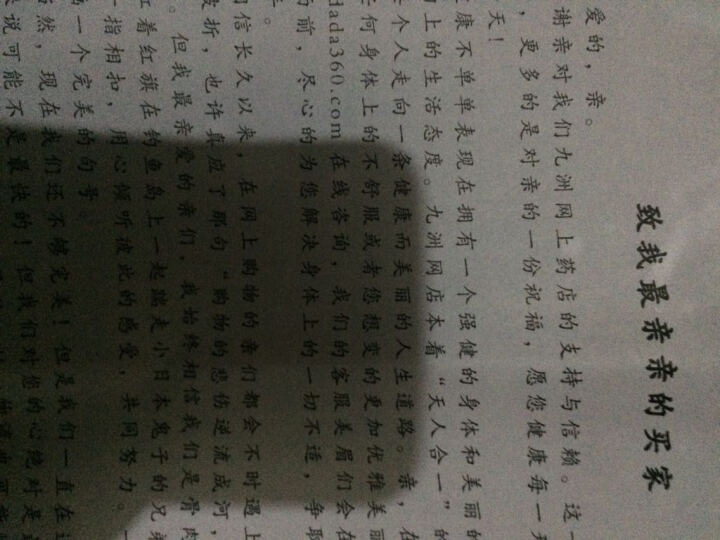 致我最亲亲的买家
爱的，亲。
谢亲对我们九洲网上药店的支持与信赖。这一
，更多的是对亲的一份祝福，愿您健康每一天
天！
康不单单表现在拥有一个强健的身体和美丽的
上的生活态度。九洲网店本着“天人合一”的
个人走向一条健康而美丽的人生道路。亲，在
何身体上的不舒服或者您想变的更加优雅美丽
dada360.com 在线咨询，我们的客服美眉们会在
前，尽心的为您解决身体上的一切不适，争取
信长久以来，在网上购物的亲们都会不时遇上
波折，也许真应了那句“购物的悲伤逆流成河，
。但我最亲爱的亲们，我始终相信我们是骨肉
着红旗在钓鱼岛上一起踹走小日本鬼子的兄弟
一指相扣，用心倾听彼此的感受，共同努力。一
一个完美的句号。
然，现在我们还不够完美！但是我们一直在
说可能不是最快的！但我们对您的心绝对是最